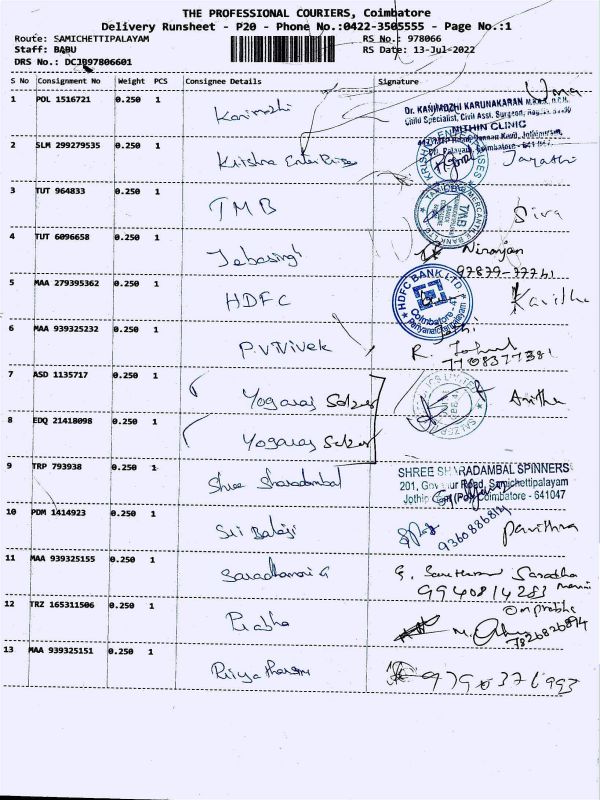 THE PROFESSIONAL COURIERS, Coimbatore
Delivery Runsheet - P20 - Phone No.:0422-3505555 - Page No.:1
Route: SAMICHETTIPALAYAM RS No.: 978066
Staff: BABU RS Date: 13-Jul-2022
DRS No.: DCJ097806601
S No Consignment No Weight PCS Consignee Details Signature
Uma
1 POL 1516721 0.250 1 Kanimozhi
Dr. KANIMOZHI KARUNAKARAN
Child Specialist, Civil Asst. Surgeon
NITHIN CLINIC
2 SLM 299279535 0.250 1 Krishna Enterprises Jayathi
3 TUT 964833 0.250 1 TMB Siva
4 TUT 6096658 0.250 1 Jebasingh Niranjan
5 MAA 279395362 0.250 1 HDFC HDFC BANK LTD Coimbatore Kavitha
6 MAA 939325232 0.250 1 P V Vivek R.
7708377381
7 ASD 1135717 0.250 1 Yogaraj Selzer Anitha
8 EDQ 21418098 0.250 1 Yogaraj Selzer
9 TRP 793938 0.250 1 Shree Sharadambal
SHREE SHARADAMBAL SPINNERS
201, Governur Road, Samichettipalayam
Jothipuram (Po), Coimbatore - 641047
10 PDM 1414923 0.250 1 Sri Balaji 9360886814 Pavithra
11 MAA 939325155 0.250 1 Saradhamani G
9940814283
12 TRZ 165311506 0.250 1 Prabha
7826826894
13 MAA 939325151 0.250 1 Priyatharsni 9790376993